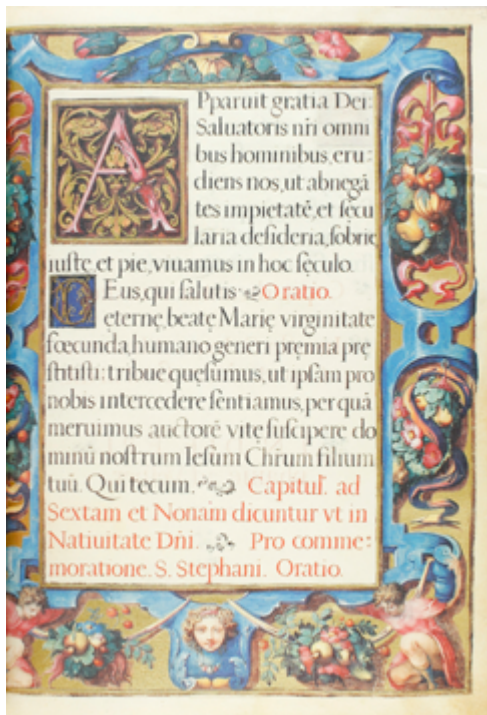 Apparuit gratia Dei:
Saluatoris nr̄i omni
bus hominibus, eru:
diens nos, ut abnegā
tes impietatē, et ſecu
laria deſideria, ſobrie,
iuſte, et pie, viuamus in hoc ſęculo.
DEus, qui ſalutis Oratio.
eternę, beatę Marię virginitate
fœcunda, humano generi pręmia prę
ſtitiſti: tribue quęſumus, ut ipſam pro
nobis intercedere ſentiamus, per quā
meruimus auctorē vitę ſuſcipere do
minū noſtrum Ieſum Chr̄um filium
tuū. Qui tecum. Capitul̄. ad
Sextam et Nonam dicuntur vt in
Natiuitate Dn̄i. Pro comme:
moratione. S. Stephani. Oratio.